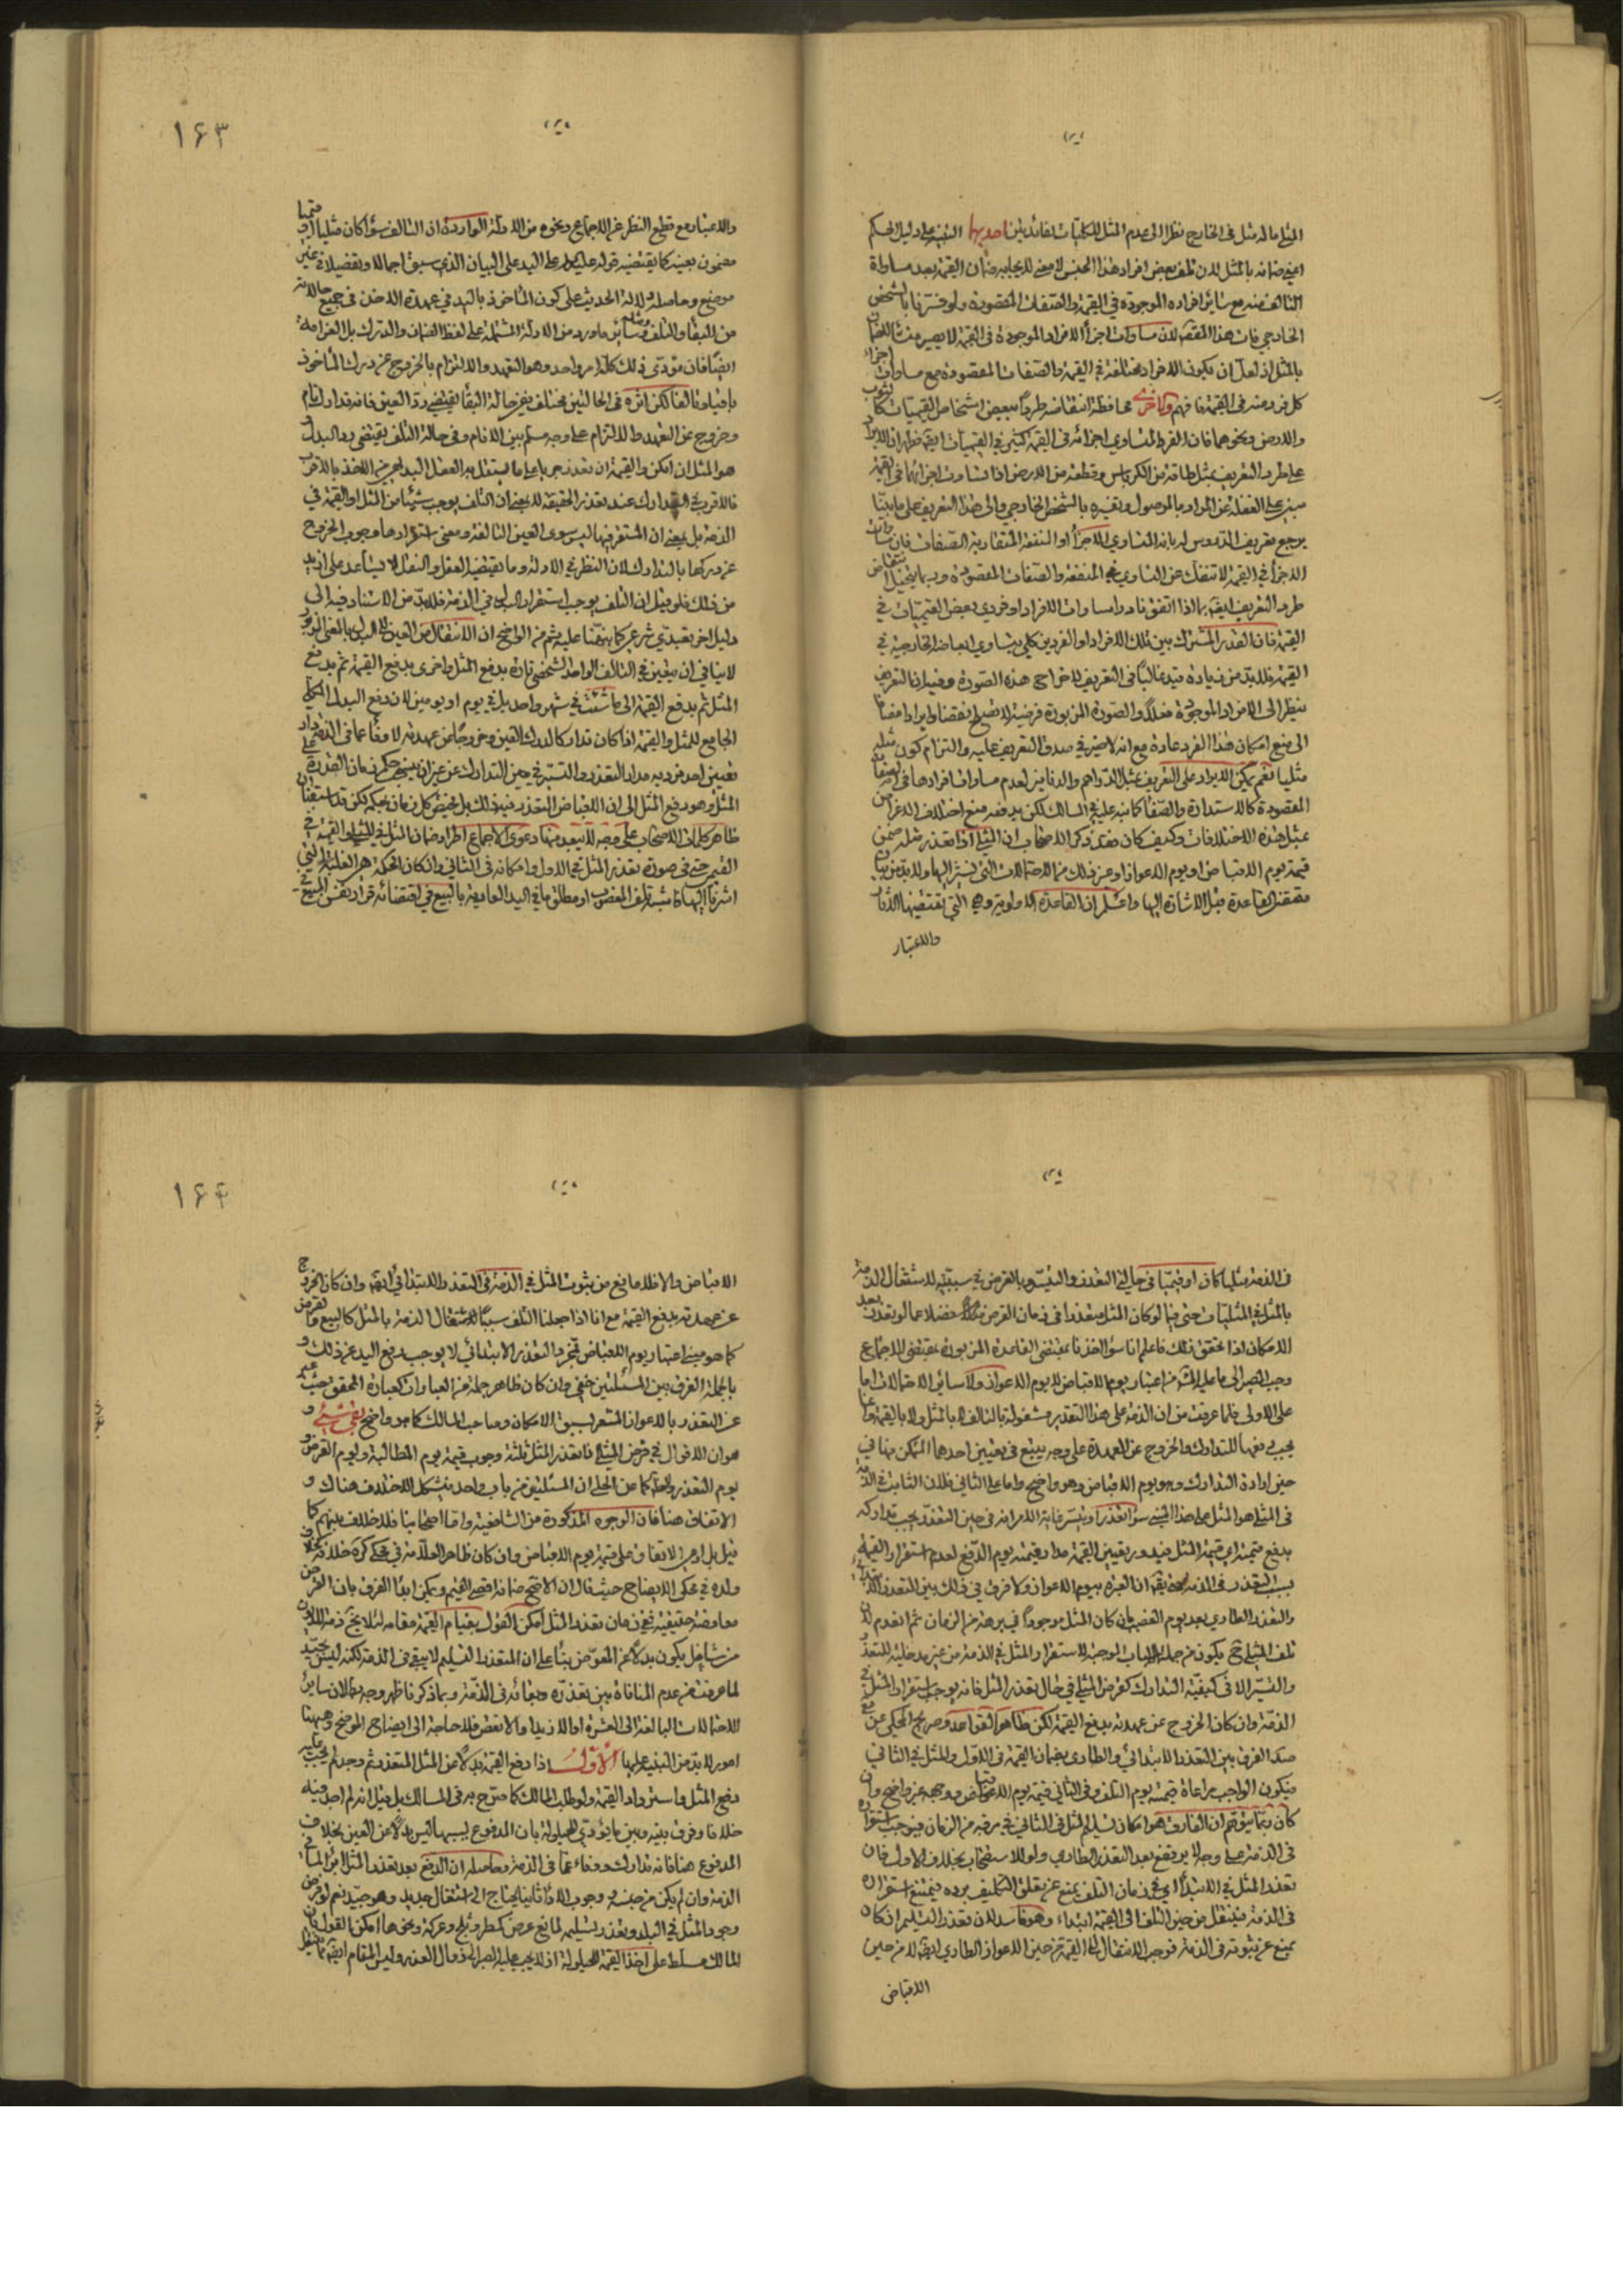 المثلي ماله مثل في الخارج نظرا الى عدم المثل للكليات لفائدتين احديهما التنبيه على دليل الحكم
اعني ضمانه بالمثل لان تلف بعض افراد هذا الجنس لا معنى لايجابه ضمان القيمة بعد مساواة
التالف منه مع سائر افراده الموجودة في القيمة والصفات المقصودة ولو فسرناها بالشخص
الخارجي فات هذا المقصد لان مساوات اجزأ الافراد الموجودة في القيمة لا يصير منشأ للضمان
بالمثل اذ لعل ان يكون الافراد مختلفة في القيمة والصفات المقصودة مع مساوات اجزاء
كل فرد منه في القيمة فافهم والاخرى محافظة انتقاضه طردا ببعض اشخاص القيميات كالثوب
والارض ونحوهما فان الفرد المتساوي اجزائه في القيمة كثير في القيميات ايضا فظهر ان الايراد
على طرد التعريف بمثل طاقة من الكرباس وقطعة من الارض اذا تساوت اجزائها في القيمة
مبني على الغفلة عن المراد بالموصول وتفسيره بالشخص الخارجي والى هذا التعريف على ما بينا
يرجع تعريف الدروس له بانه المتساوي الاجزأ او المنفعة المتقاربة الصفات فان مساوات
الاجزأ في القيمة لا تنفك عن التساوي في المنفعة والصفات المقصودة وربما يتخيل انتقاض
طرد التعريف ايضا بما اذا اتفق نادرا مساوات الافراد او فردي بعض القيميات في
القيمة فان القدر المشترك بين تلك الافراد او الفردين كلي يتساوي ابعاضه الخارجية في
القيمة فلابد من زيادة قيد غالبا في التعريف لاخراج هذه الصورة وفيه ان التعريف
ينظر الى الافراد الموجودة فعلا والصورة المزبورة فرضية لا تصلح نقضا وايرادا مضافا
الى منع امكان هذا الفرد عادة مع انه لا ضير في صدق التعريف عليه والتزام كون مثله
مثليا نعم يمكن الايراد على التعريف بمثل الدراهم والدنانير لعدم مساوات افرادها في الصفات
المقصودة كالاستدارة والصفا كما نبه عليه في المسالك لكن يدفعه منع اختلاف الاغراض
بمثل هذه الاختلافات وكيف كان فقد ذكر الاصحاب ان المثلي اذا تعذر مثله ضمن
قيمته يوم الاقباض او يوم الاعواز او غير ذلك من الاحتمالات التي نشير اليها ولابد من بيان
مقتضى القاعدة قبل الاشارة اليها واعلم ان القاعدة الاولوية وهي التي يقتضيها الذات
والاعتبار
١٦٣
والاعتبار مع قطع النظر عن الاجماع ونحوه من الادلة الواردة ان التالف سوأ كان مثليا او قيميا
مضمون بعينه كما يقتضيه قوله عليه السلام على اليد على البيان الذي سبق اجمالا وتفصيلا في غير
موضع وحاصله دلالة الحديث على كون المأخوذ باليد في عهدة الاخذ في جميع حالاته
من البقأ والتلف وسائر ما ورد من الادلة المشتملة على لفظ الضمان والتدارك بل الغرامة
ايضا فان مؤدى ذلك كله امر واحد وهو التعهد والالتزام بالخروج عن درك المأخوذ
باقيا وتالفا لكن اثره في الحالتين مختلف ففي حالة البقأ يقتضي رد العين فانه تدارك تام
وخروج عن التعهد والالتزام على وجه مسلم بين الانام وفي حالة التلف يقتضي رد البدل و
هو المثل ان امكن والقيمة ان تعذر جريا على ما يستقل به العقل السليم من الاخذ بالاقرب
فالاقرب في التدارك عند تعذر الحقيقة لا بمعنى ان التلف يوجب شيئا من المثل او القيمة في
الذمة بل بمعنى ان المستقر فيها ليس سوى العين التالفة ومعنى استقرارها وجوب الخروج
عن دركها بالتدارك لان النظر في الادلة وما يقتضيه العقل والنقل لا يساعد على ازيد
من ذلك فلو قيل ان التلف يوجب استقرار البدل في الذمة فلابد من الاستناد فيه الى
دليل اخر تعبدي شرعي كما نبهنا عليه ثم من الواضح ان الانتقال من العين الى البدل بالمعنى المزبور
لا ينافي ان يتعين في التالف الواحد الشخصي تارة بدفع المثل واخرى بدفع القيمة ثم بدفع
المثل ثم بدفع القيمة الى ما شئت في شهر واحد بل في يوم او يومين لان دفع البدل الكلي
الجامع للمثل والقيمة اذا كان تداركا لدرك العين وخروجا عن عهدته لا وفأ عما في الذمة دار
تعيين احد فرديه مدار التعذر والتيسر في حين التدارك
المثل وهو دفع المثل الى ان الاقباض المتعذر فيه ذلك بل يختص كل زمان بحكمه لكن قد استقضينا
ظاهر كلمات الاصحاب على وجه لا يبعد معها دعوى الاجماع اطراد ضمان المثل في المثلي والقيمة في
القيمي حتى في صورة تعذر المثل في الاول وامكانه في الثاني وان كان الحكمة هي الغلبة التي
اشرنا اليها كما شبه تلف المغصوب او مطلق ما في اليد العادية بالبيع في اقتضائه قرار نفس المبيع في
في الذمة مثليا كان او قيميا في حالتي التعذر والتيسر وبالقرض في سببيته لاشتغال الذمة
بالمثل في المثليات حتى فيما لو كان المثل متعذرا في زمان القرض فضلا عما لو تعذر بعد
الامكان اذا تحقق ذلك فاعلم انا سوأ اخذنا بمقتضى القاعدة المزبورة او بمقتضى الاجماع
وجب المصير الى ما عليه المشهور من اعتبار يوم الاقباض لا يوم الاعواز ولا سائر الاحتمالات اما
على الاولى فلما عرفت من ان الذمة على هذا التقدير مشغولة بالتالف لا بالمثل ولا بالقيمة وانما
يجب دفعها للتدارك والخروج عن العهدة على وجه يتبع في تعيين احدهما التمكن منها في
حين ارادة التدارك وهو يوم الاقباض وهو واضح واما على الثاني فلان الثابت في الذمة
في المثلي هو المثل على هذا المبني سوأ تعذر او تيسر غاية الامر انه في حين التعذر يجب تداركه
بدفع قيمته اي قيمة المثل فيدور تعيين القيمة مدار قيمته يوم الدفع لعدم استقرار القيمة
بسبب التعذر في الذمة حتى يقال ان العبرة بيوم الاعواز ولا فرق في ذلك بين التعذر الابتدائي
والتعذر الطاري بعد يوم الغصب بان كان المثل موجودا في برهة من الزمان ثم انعدم لان
تلف المثلي ح يكون من جملة الاسباب الموجبة لاستقرار المثل في الذمة من غير مدخلية للتعذر
والتيسر الا في كيفية التدارك كقرض المثلي في حال تعذر المثل فانه يوجب استقرار المثل في
الذمة وان كان الخروج عن عهدته بدفع القيمة لكن ظاهر القواعد وصريح المحكي عن
الفرق بين التعذر الابتدائي والطاري بضمان القيمة في الاول والمثل في الثاني
فيكون الواجب مراعاة قيمته يوم التلف وفي الثاني قيمته يوم الاقباض ووجهه غير واضح وان
كان ربما يتوهم ان الفارق هو امكان تسليم المثل في الثاني في برهة من الزمان فيوجب استقراره
في الذمة على وجه لا يرتفع بعد التعذر الطاري ولو للاستصحاب بخلاف الاول فان
تعذر المثل في الابتدأ اي في زمان التلف يمنع عن تعلق التكليف برده فيمتنع استقراره
في الذمة فينتقل من حين التلف الى القيمة ابتداء وهو فاسد لان تعذر التسليم ان كان
يمنع عن ثبوته في الذمة فوجب الانتقال الى القيمة من حين الاعواز الطاري ايضا لا من حين
الاقباض
١٦٤
الاقباض والا فلا مانع من ثبوت المثل في الذمة في التعذر الابتدائي ايضا وان كان الخروج
عن عهدته بدفع القيمة مع انا اذا جعلنا التلف سببا لاشتغال الذمة بالمثل كالبيع والقرض
كما هو مبنى اعتبار يوم الاقباض فمجرد التعذر الابتدائي لا يوجب رفع اليد عن ذلك و
بالجملة الفرق بين المسئلتين خفي وان كان ظاهر جملة من العبارات كعبارة المحقق حيث عبر
عن التعذر بالاعواز المشعر لسبق الامكان وصاحب المسالك كما هو واضح بقي شيئ و
هو ان الاقوال في قرض المثلي فا تعذر المثل ثلثة وجوب قيمة يوم المطالبة ويوم القرض و
يوم التعذر والمحكي عن الحلي ان المسئلتين من باب واحد فيشكل الاختلاف هناك و
الاتفاق هنا فان الوجوه المذكورة من الشافعية واما اصحابنا فلا خلاف بينهم كما
قيل بل ادعى الاتفاق على قيمة يوم الاقباض وان كان ظاهر العلامة في محكي كره خلافه
ولده في محكي الايضاح حيث قال ان الاصح ضمانه اقصى القيم ويمكن ابدأ الفرق بان القرض
معاوضة حقيقية ففي زمان تعذر المثل امكن القول بقيام القيمة مقامه لئلا يخ ذمة المديون
من شاغل يكون بدلا عن المعوض بنأ على ان المتعذر التسليم لا يبقى في الذمة لكنه ليس بجيد
لما عرفت من عدم المنافاة بين تعذره وبقائه في الذمة وبما ذكرنا ظهر وجه بطلان سائر
الاحتمالات البالغة الى العشرة او الازيد او الانقص فلا حاجة الى ايضاح الموضح وههنا
امور لابد من التنبيه عليها الاول اذا دفع القيمة بدلا عن المثل المتعذر ثم وجد لم يجب عليه
دفع المثل واسترداد القيمة ولو طلب المالك كما صرح به في المسالك بل قيل انه لم اجد فيه
خلافا وفرق بينه وبين ما يؤدي للحيلولة بان المدفوع بسببها ليس بدلا عن العين بخلاف
المدفوع هنا فانه تدارك ووفاء عما في الذمة وحاصله ان الدفع بعد تعذر المثل ابرأ لما في
الذمة وان لم يكن من جنسه ووجوب الاداء ثانيا يحتاج الى اشتغال جديد وهو جيد نعم لو فرض
وجود المثل في البلد وتعذر تسليمه لمانع عرض كمطر وثلج وعركة ونحوها امكن القول بان
المالك مسلط على اخذ القيمة للحيلولة اذ لا يجب عليه الصبر الى زوال العذر وليس المقام ايضا